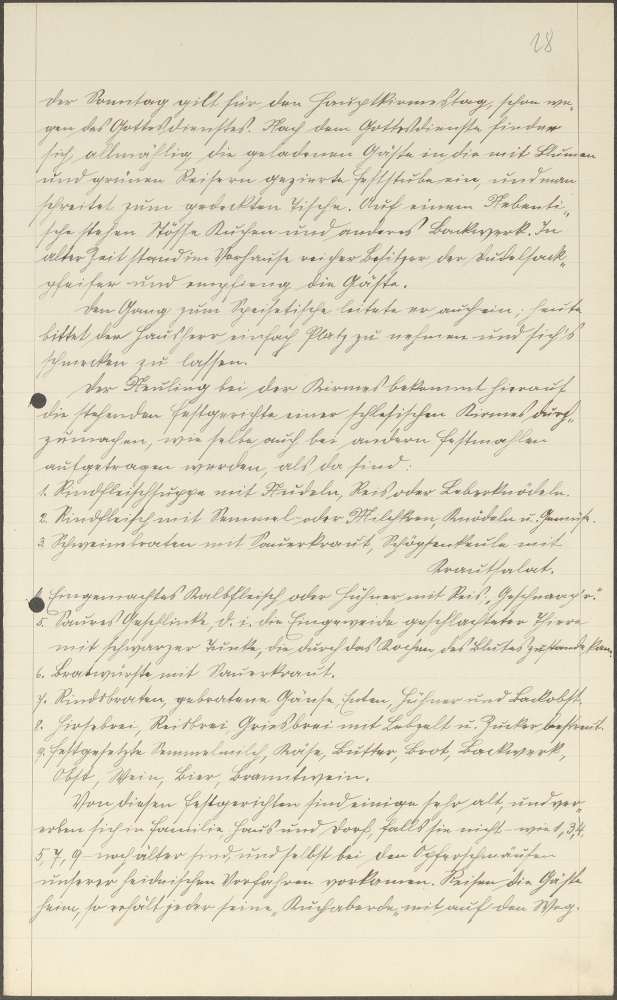 28
Der Sonntag gilt für den Hauptkirmestag, schon we-
gen des Gottesdienstes. Nach dem Gottesdienste finden
sich allmählig die geladenen Gäste in die mit Blumen
und grünen Reisern gezierte Feststube ein, und man
schreitet zum gedeckten Tische. Auf einem Nebenti-
sche stehen Stösse Kuchen und anderes Backwerk. In
alter Zeit stand im Vorhause reicher Besitzer der Dudelsack-
pfeifer und empfieng die Gäste.
Den Gang zum Speisetische leitete er auch ein; heute
bittet der Hausherr einfach Platz zu nehmen und sich's
schmecken zu lassen.
Der Neuling bei der Kirmes bekommt hierauf
die stehenden Festgerichte einer schlesischen Kirmes durch-
zumachen, wie selbe auch bei andern Festmahlen
aufgetragen werden, als da sind:
1. Rindfleischsuppe mit Nudeln, Reis oder Leberknödeln.
2. Rindfleisch mit Semmel- oder Milchkren, Knödeln u. Gemüse.
3. Schweinebraten mit Sauerkraut, Schöpsenkeule mit
Krautsalat.
4. Eingemachtes Kalbfleisch oder Hühner mit Reis,
5. Saures Geschlinke, d. i. die Eingeweide geschlachteter Thiere
mit schwarzer Tunke, die durch das Kochen des Blutes zustande kam.
6. Bratwürste mit Sauerkraut.
7. Rindsbraten, gebratene Gänse, Enten, Hühner und Backobst,
8. Hirsebrei, Reisbrei Griesbrei mit Lebzelt u. Zucker bestreut.
9. Festgesetzte Semmelmilch, Käse, Butter, Brot, Backwerk,
Obst, Wein, Bier, Branntwein.
Von diesen Festgerichten sind einige sehr alt, und ver-
erben sich in Familie, Haus und Dorf, falls sie nicht - wie 1, 3, 4,
5, 7, 9 - noch älter sind, und selbst bei den Opferschmäusen
unserer heidnischen Vorfahren vorkamen. Reisen die Gäste
heim, so erhält jeder seine "Kuchaberde" mit auf den Weg.